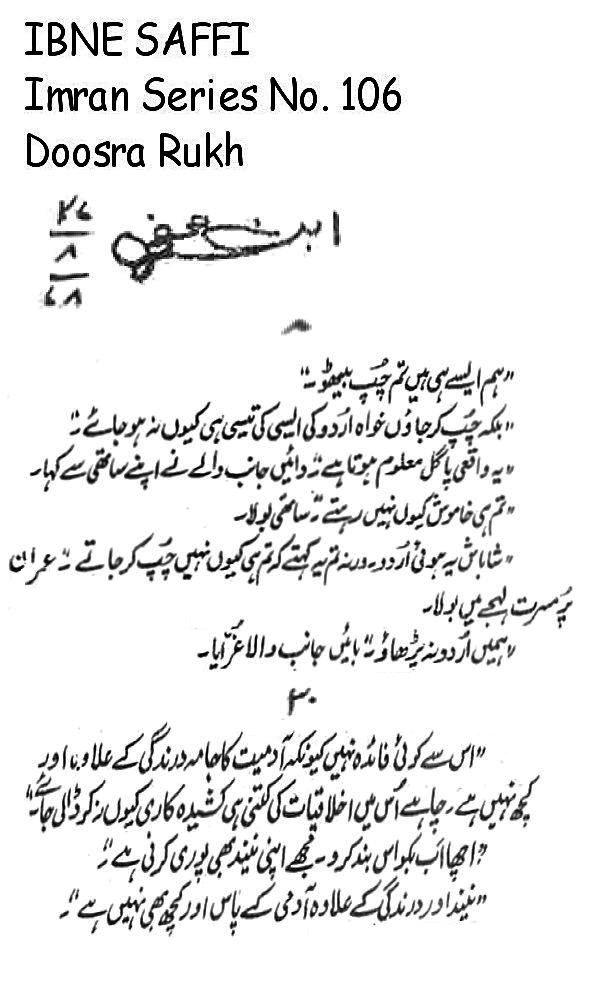 IBNE SAFFI
Imran Series No. 106
Doosra Rukh
ابن صفی
۲۶
۸
۷۸
”ہم ایسے ہی ہیں تم چپ بیٹھو۔“
”بلکہ چپ کر جاؤں خواہ اُردو کی ایسی کی تیسی ہی کیوں نہ ہو جائے۔“
”یہ واقعی پاگل معلوم ہوتا ہے۔“ دائیں جانب والے نے اپنے ساتھی سے کہا۔
”تم ہی خاموش کیوں نہیں رہتے۔“ ساتھی بولا۔
”شاباش یہ ہوئی اُردو۔ ورنہ تم یہ کہتے کہ تم ہی کیوں نہیں چپ کر جاتے۔“ عمران
پُر مسرت لہجے میں بولا۔
”ہمیں اُردو نہ پڑھاؤ۔“ بائیں جانب والا غرّایا۔
۳۰
”اس سے کوئی فائدہ نہیں کیونکہ آدمیت کا جامہ درندگی کے علاوہ اور
کچھ نہیں ہے۔ چاہے اُس میں اخلاقیات کی کتنی ہی کشیدہ کاری کیوں نہ کر ڈالی جائے۔“
”اچھا اَب بکواس بند کرو۔ مجھے اپنی نیند بھی پوری کرنی ہے۔“
”نیند اور درندگی کے علاوہ آدمی کے پاس اور کچھ بھی نہیں ہے“۔